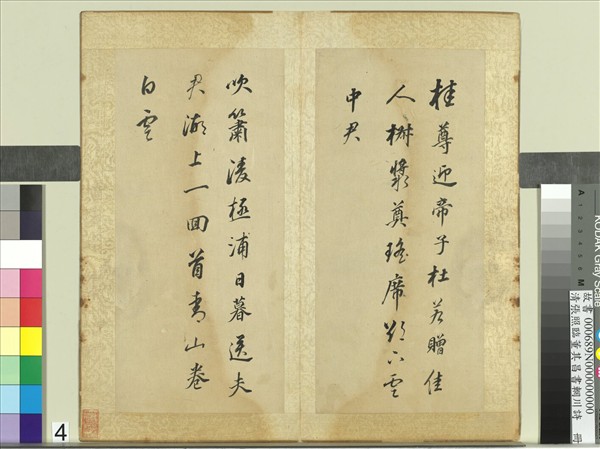 桂尊迎帝子杜若贈佳
人椒漿奠瑤席欲下雲
中君
吹簫凌極浦日暮送夫
君湖上一回首青山卷
白雲
4
KODAK Gray Scale
A 1 2 3 4 5 6 M
故書 000689N000000000
清張照臨董其昌書輞川詩 冊